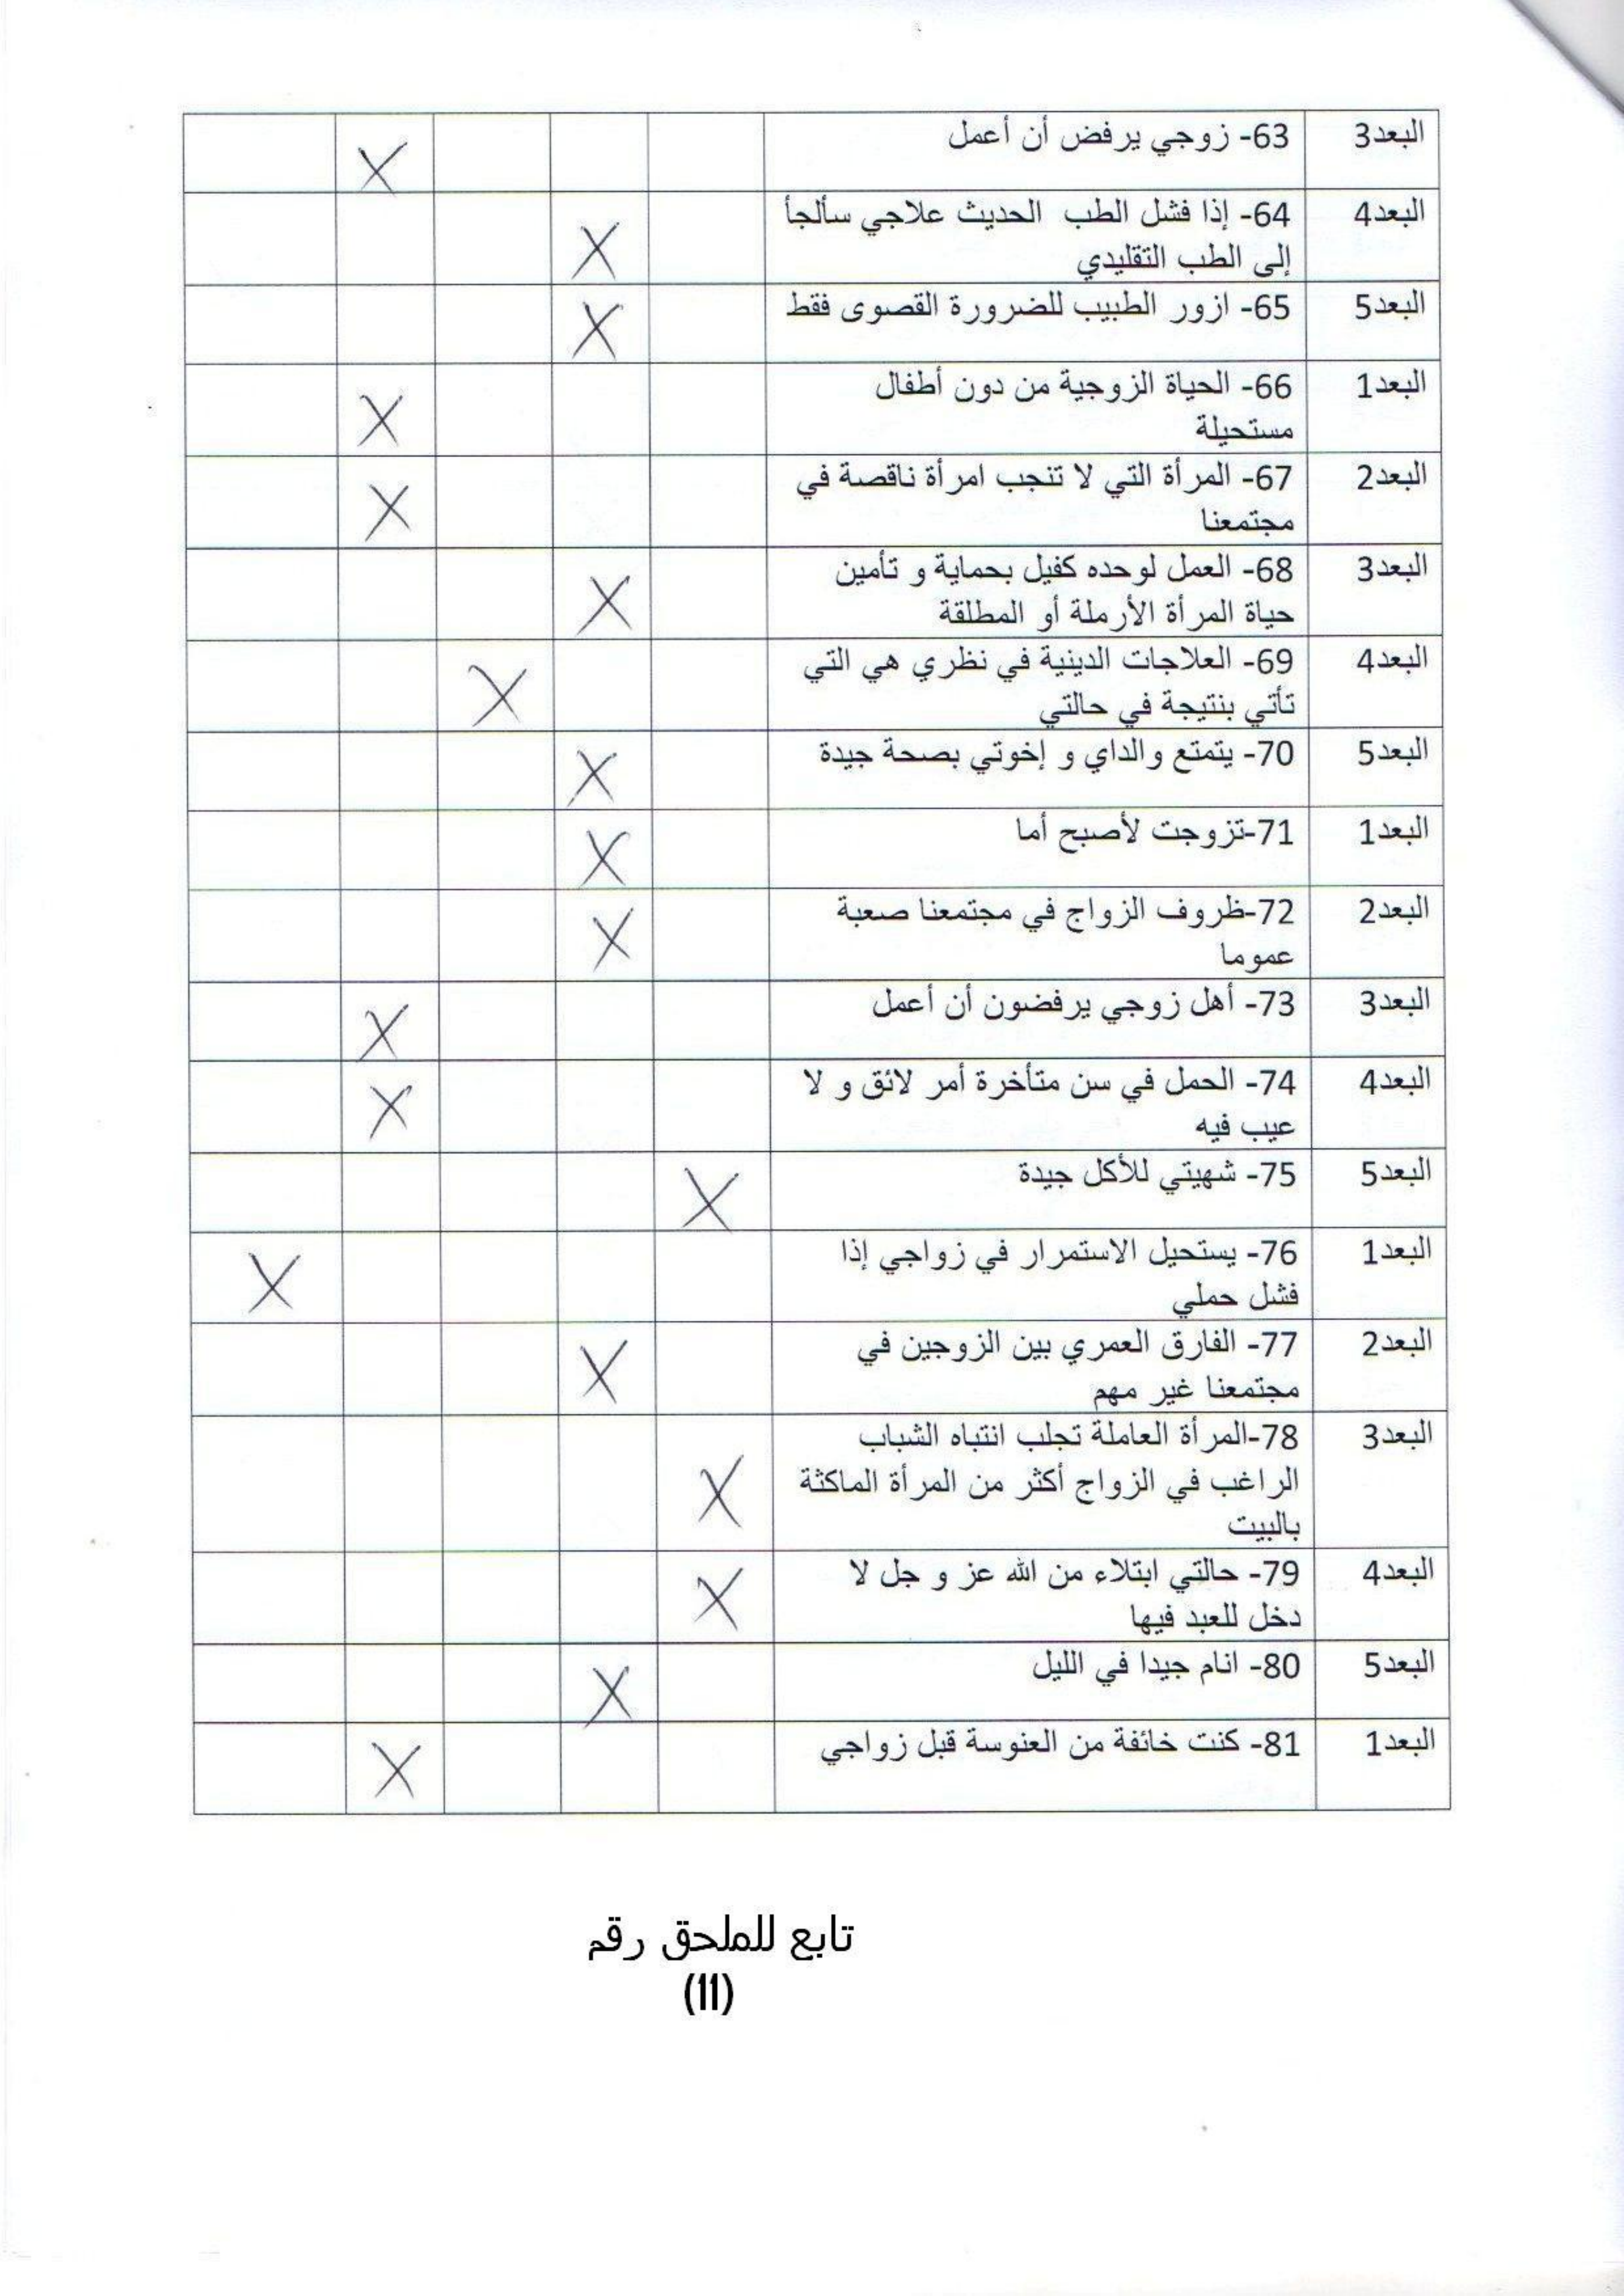 البعد3 63- زوجي يرفض أن أعمل X
البعد4 64- إذا فشل الطب الحديث علاجي سألجأ
إلى الطب التقليدي X
البعد5 65- ازور الطبيب للضرورة القصوى فقط X
البعد1 66- الحياة الزوجية من دون أطفال
مستحيلة X
البعد2 67- المرأة التي لا تنجب امرأة ناقصة في
مجتمعنا X
البعد3 68- العمل لوحده كفيل بحماية و تأمين
حياة المرأة الأرملة أو المطلقة X
البعد4 69- العلاجات الدينية في نظري هي التي
تأتي بنتيجة في حالتي X
البعد5 70- يتمتع والداي و إخوتي بصحة جيدة X
البعد1 71-تزوجت لأصبح أما X
البعد2 72-ظروف الزواج في مجتمعنا صعبة
عموما X
البعد3 73- أهل زوجي يرفضون أن أعمل X
البعد4 74- الحمل في سن متأخرة أمر لائق و لا
عيب فيه X
البعد5 75- شهيتي للأكل جيدة X
البعد1 76- يستحيل الاستمرار في زواجي إذا
فشل حملي X
البعد2 77- الفارق العمري بين الزوجين في
مجتمعنا غير مهم X
البعد3 78-المرأة العاملة تجلب انتباه الشباب
الراغب في الزواج أكثر من المرأة الماكثة
بالبيت X
البعد4 79- حالتي ابتلاء من الله عز و جل لا
دخل للعبد فيها X
البعد5 80- انام جيدا في الليل X
البعد1 81- كنت خائفة من العنوسة قبل زواجي X
تابع للملحق رقم
(11)